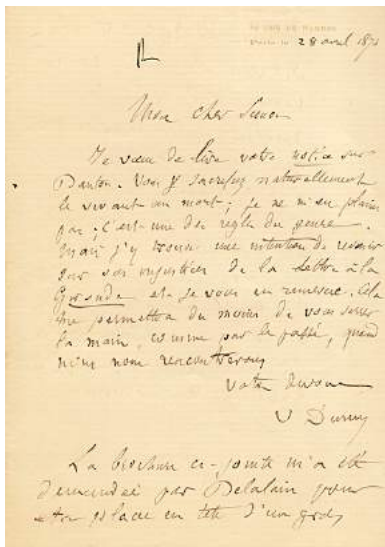 28 avril 187
Mon cher Simon
Je viens de lire votre notice sur
Danton. Vous y sacrifiez naturellement
le vivant au mort ; je ne m'en plains
pas ; c'est une des règles du genre.
Mais j'y trouve une intention de revenir
sur vos injustices de la lettre à la
Gironde et je vous en remercie. Cela
me permettra du moins de vous serrer
la main, comme par le passé, quand
nous nous rencontrerons
Votre dévoué
V Duruy
La brochure ci-jointe m'a été
demandée par Delalain pour
être placée en tête d'un